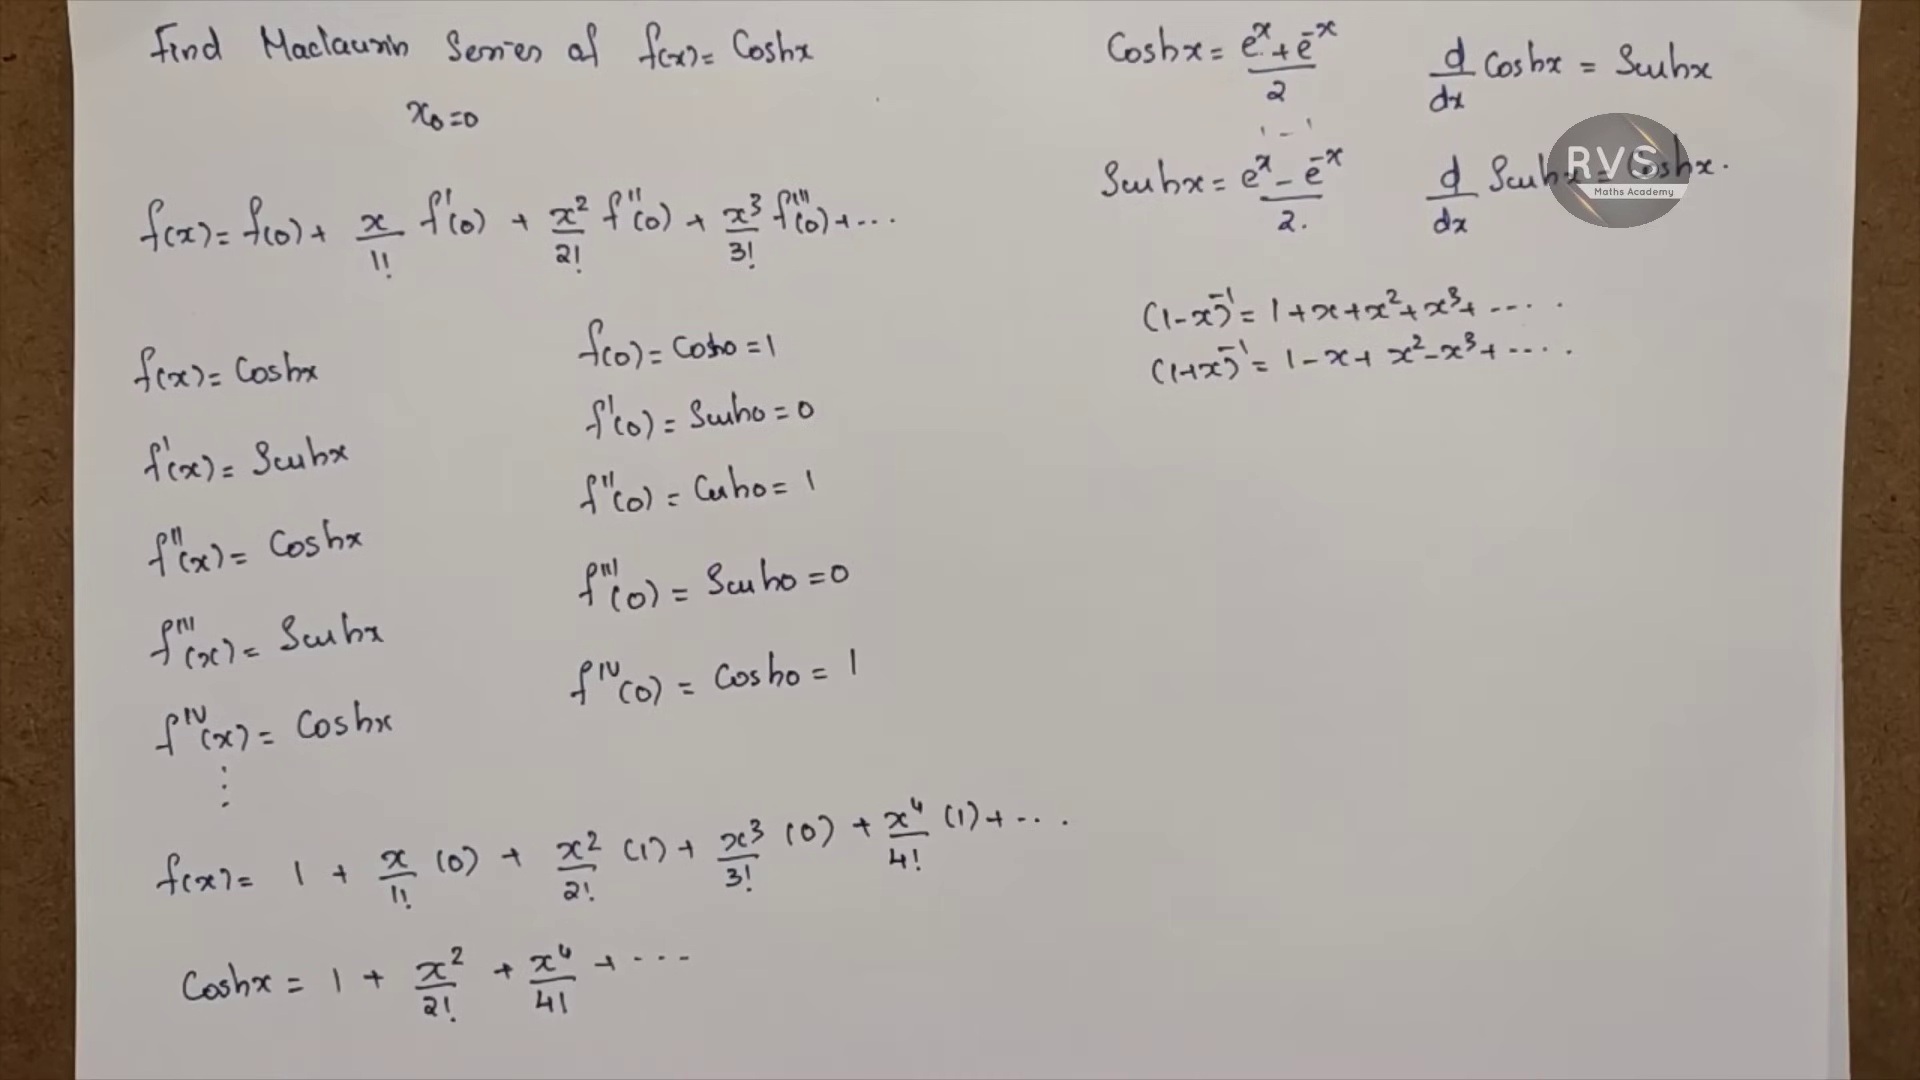 Find Maclaurin Series of f(x) = Coshx
x₀ = 0
f(x) = f(0) + x/1! f'(0) + x²/2! f''(0) + x³/3! f'''(0) + ...
f(x) = Coshx
f'(x) = Sinhx
f''(x) = Coshx
f'''(x) = Sinhx
f^IV(x) = Coshx
⋮
f(0) = Cosh0 = 1
f'(0) = Sinh0 = 0
f''(0) = Cosh0 = 1
f'''(0) = Sinh0 = 0
f^IV(0) = Cosh0 = 1
f(x) = 1 + x/1! (0) + x²/2! (1) + x³/3! (0) + x⁴/4! (1) + ...
Coshx = 1 + x²/2! + x⁴/4! + ...
Coshx = (e^x + e^-x)/2
d/dx Coshx = Sinhx
1 - 1
Sinhx = (e^x - e^-x)/2.
d/dx Sinhx = Coshx.
RVS
Maths Academy
(1-x)^-1 = 1 + x + x² + x³ + .....
(1+x)^-1 = 1 - x + x² - x³ + .....